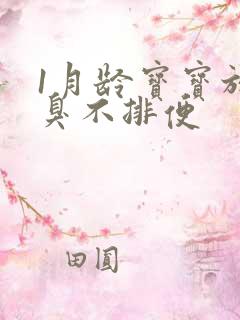 1月龄寶寶
臭不排便
田圓